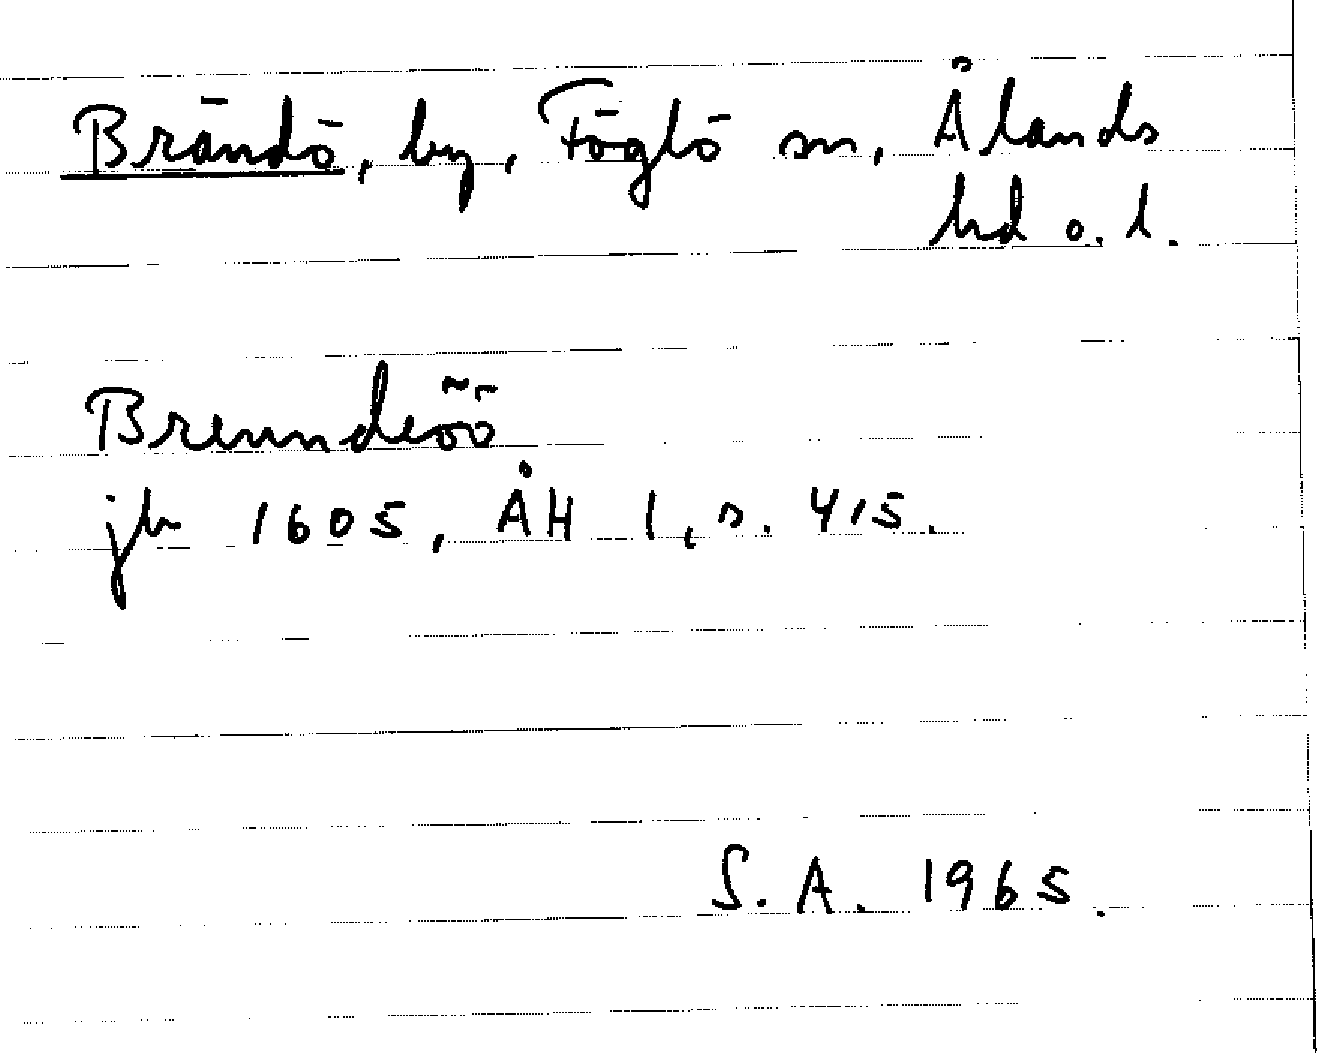 Brändö, by, Föglö sn, Ålands
hd o. l.
Brenndeöö
jb 1605, ÅH 1, s. 415.
S. A. 1965.